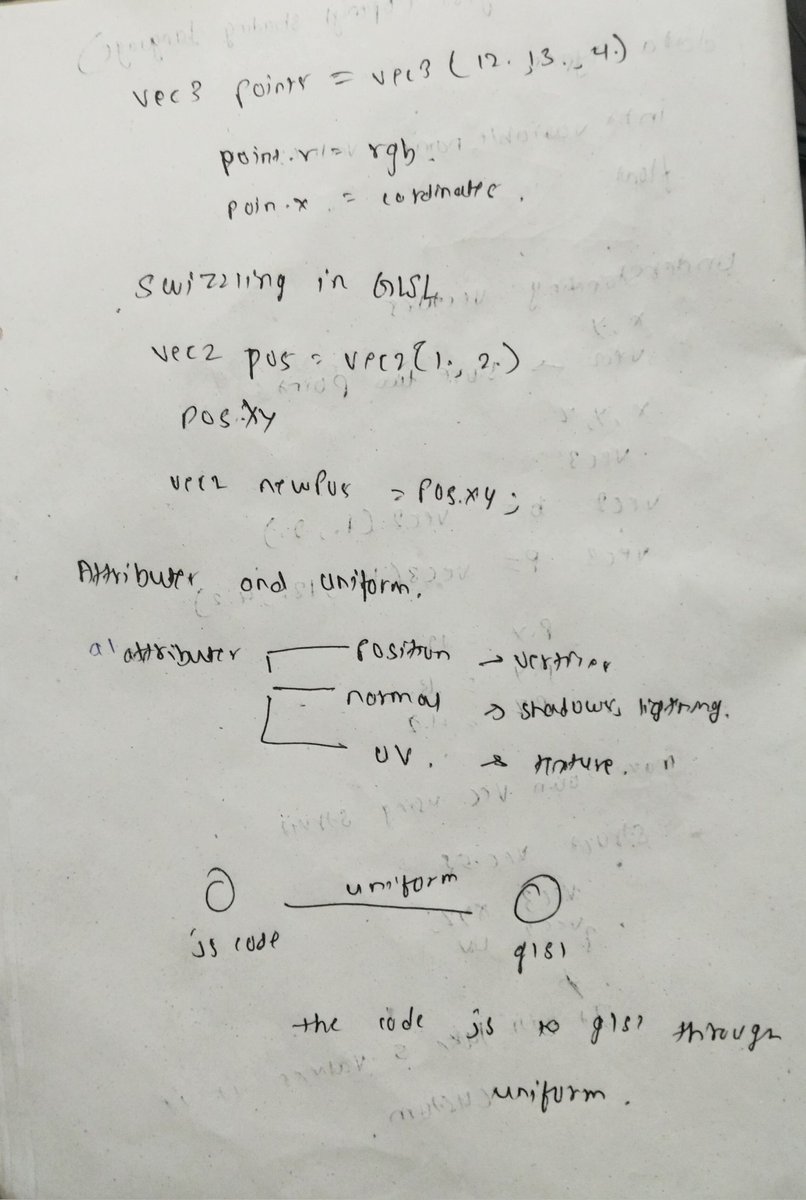 vec3 points = vec3 (12. 13., 4.)
point.r = rgb.
poin.x = cordinate.
Swizzling in GLSL
vec2 pos = vec2(1., 2.)
pos.xy
vec2 newPos = Pos.xy;
Attributes and uniform.
a) attributes position → vertices
normal → shadows, lightning.
UV. → texture.
uniform
js code glsl
the code js to glsl through
uniform.